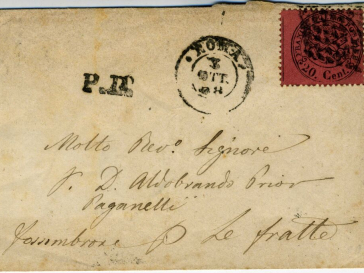 ROMA
3
OTT
68
P.D.
20. Cent.
Molto Rev.o Signore
S. D. Aldobrando Prior
Paganelli
Fossombrone p Le fratte